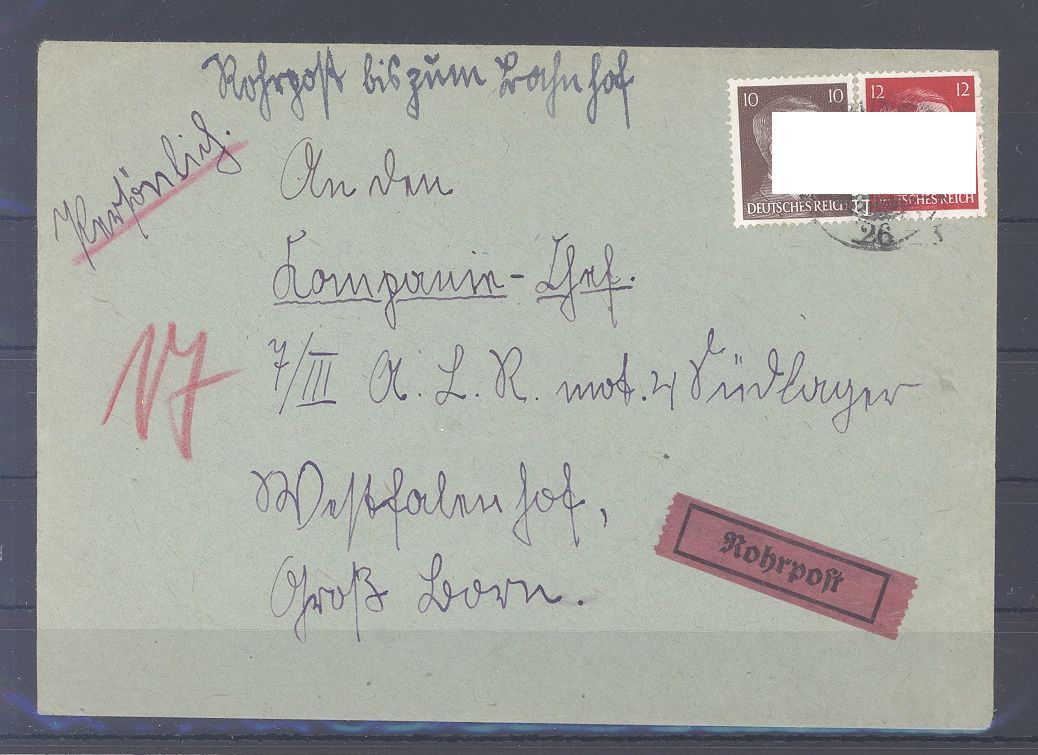 Rohrpost bis zum Bahnhof
Persönlich.
10 10
12 12
DEUTSCHES REICH
DEUTSCHES REICH
26
An den
Kompanie-Chef.
17
7/III A. L. R. mot. 4 Südlager
Westfalenhof,
Groß Born.
Rohrpost